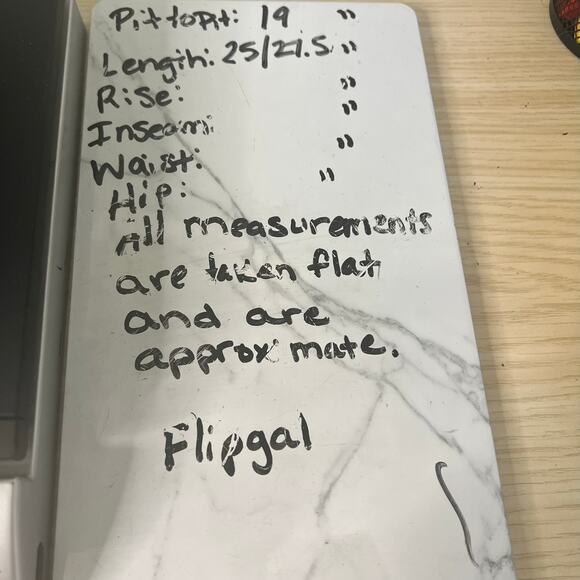 Pit to pit: 19 "
Length: 25/27.5 "
Rise: "
Inseam: "
Waist: "
Hip: "
All measurements
are taken flat
and are
approximate.
Flipgal